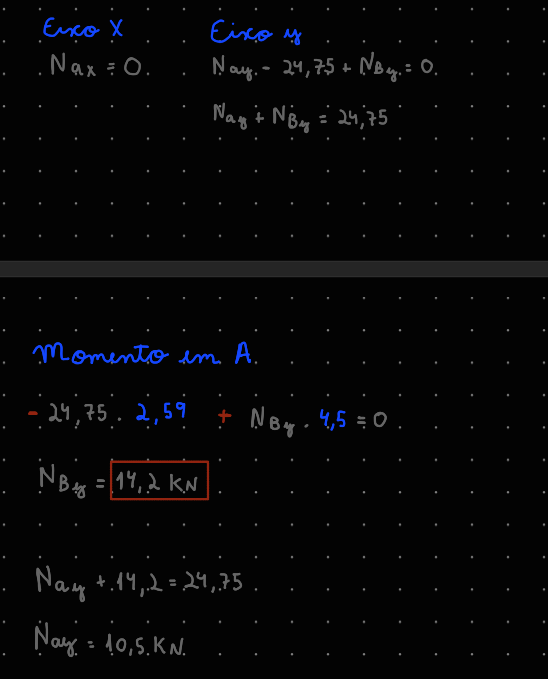 Eixo X
Nax = 0
Eixo y
Nay - 24,75 + NBy = 0
Nay + NBy = 24,75
Momento em A
- 24,75 . 2,59 + NBy . 4,5 = 0
NBy = 14,2 KN
Nay + 14,2 = 24,75
Nay = 10,5 KN